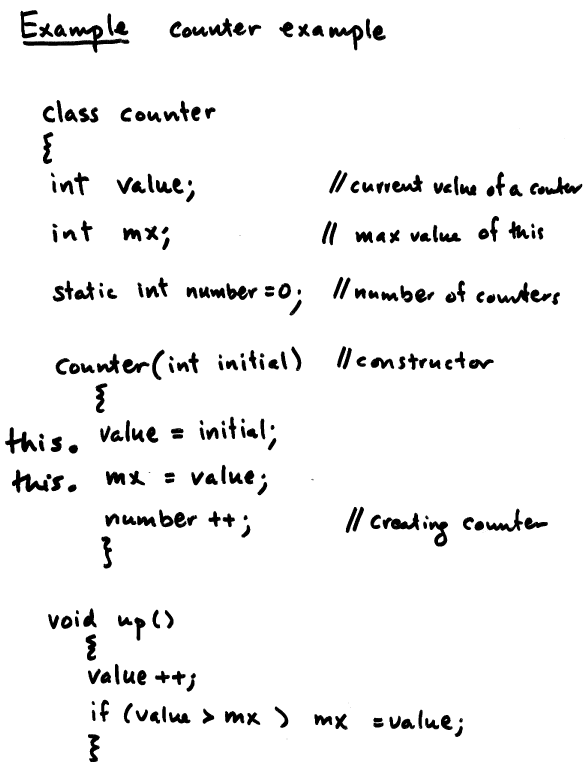 Example counter example
class counter
{
int value; //current value of a counter
int mx; // max value of this
static int number=0; //number of counters
counter(int initial) //constructor
{
this. value = initial;
this. mx = value;
number ++; // creating counter
}
void up()
{
value ++;
if (value > mx ) mx =value;
}